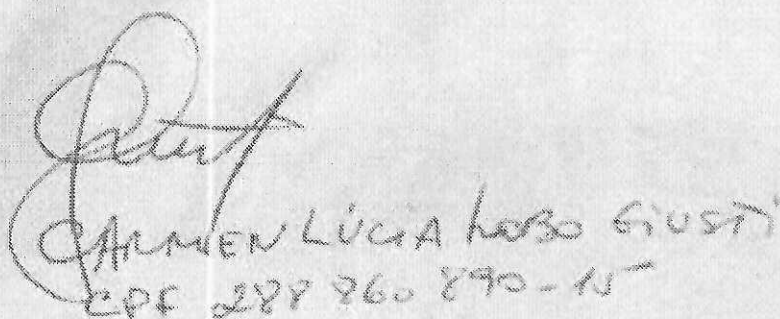 CARMEN LÚCIA LOBO GIUSTI
CPF 288 860 890-15